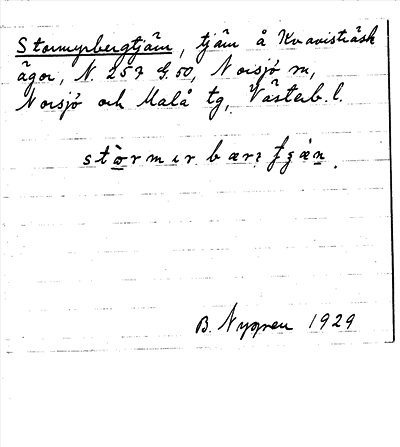 Stormyrbergtjärn, tjärn å Kvavisträsk
ägor, N. 257 G. 50, Norsjö sn,
Norsjö och Malå tg, Västerb. l.
B. Nygren 1929